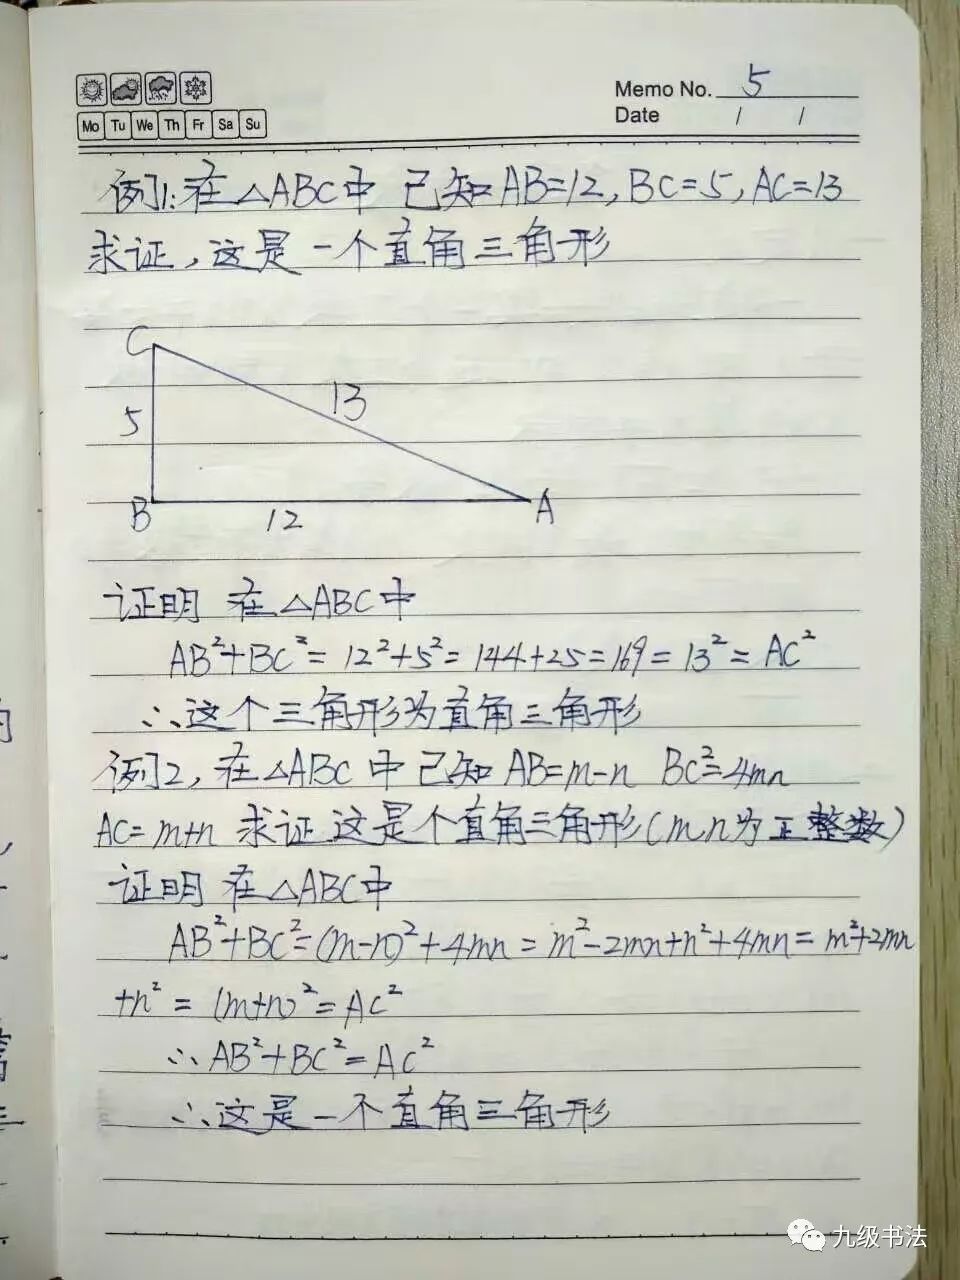 Mo Tu We Th Fr Sa Su
Memo No. 5
Date / /
例1:在△ABC中 已知AB=12,BC=5,AC=13
求证,这是一个直角三角形
C
13
5
B
12
A
证明 在△ABC中
AB²+BC²=12²+5²=144+25=169=13²=AC²
∴这个三角形为直角三角形
例2,在△ABC中已知 AB=m-n BC²=4mn
AC=m+n 求证 这是个直角三角形(m,n为正整数)
证明 在△ABC中
AB²+BC²=(m-n)²+4mn=m²-2mn+n²+4mn=m²+2mn
+n²=(m+n)²=AC²
∴AB²+BC²=AC²
∴这是一个直角三角形
的
九级书法